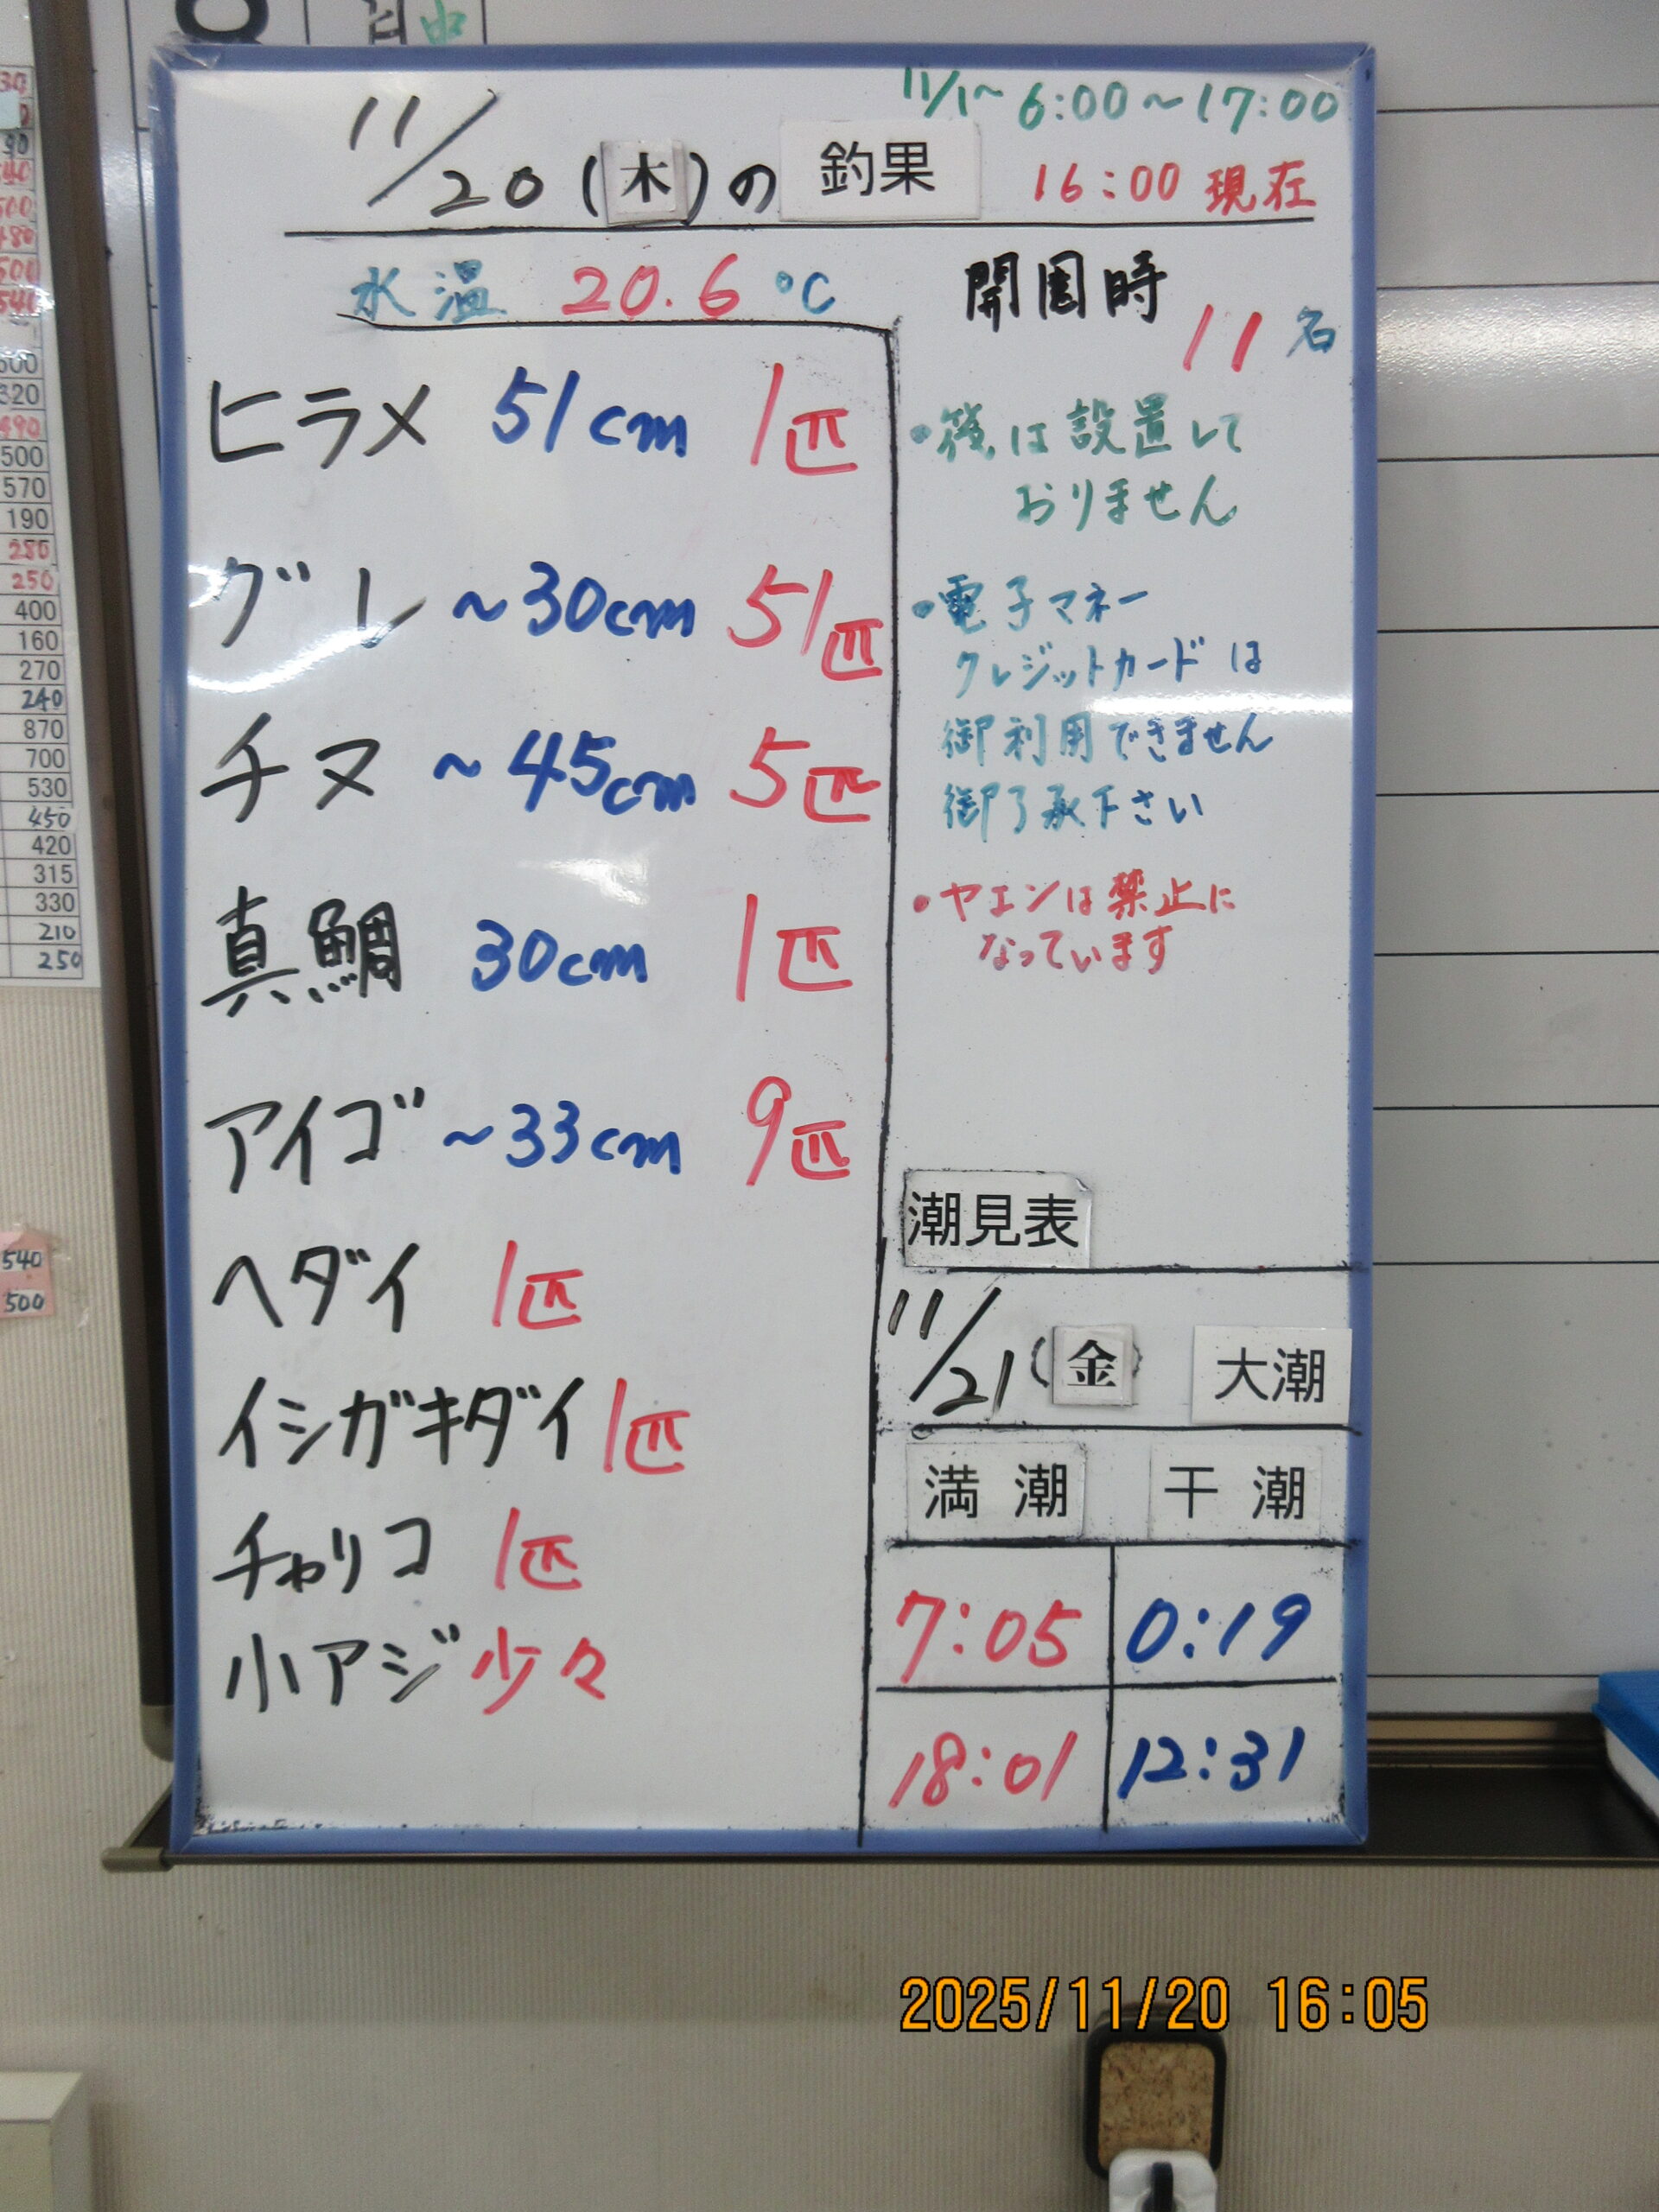 11/1~ 6:00~17:00
11/20(木)の 釣果 16:00 現在
水温 20.6 ℃
ヒラメ 51cm 1匹
グレ ~30cm 51匹
チヌ ~45cm 5匹
真鯛 30cm 1匹
アイゴ ~33cm 9匹
ヘダイ 1匹
イシガキダイ 1匹
チャリコ 1匹
小アジ 少々
開園時
11名
は設置して
おりません
・電子マネー
クレジットカードは
御利用できません
御了承下さい
・ヤエンは禁止に
なっています
潮見表
11/21(金) 大潮
満潮 干潮
7:05 0:19
18:01 12:31
500
570
190
280
250
400
160
270
240
870
700
530
450
420
315
330
210
250
540
500
2025/11/20 16:05